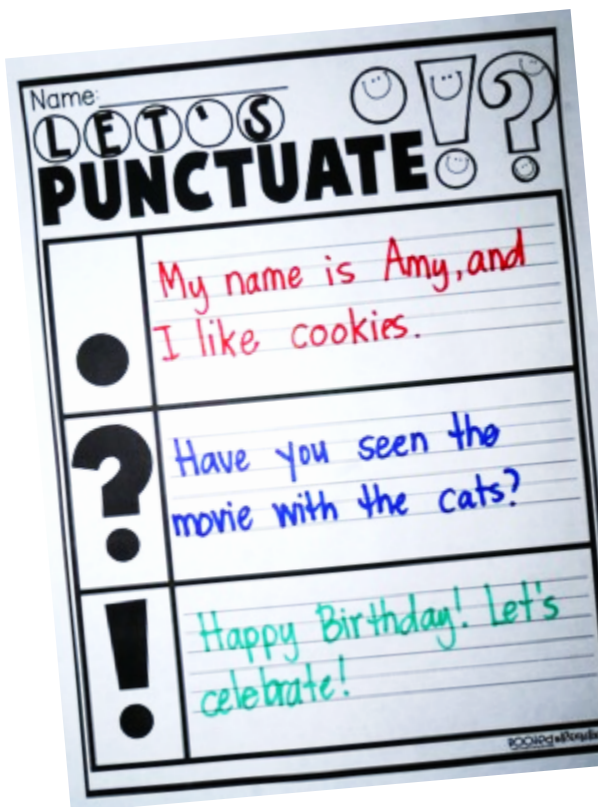 Name:
LET'S
PUNCTUATE
.
My name is Amy, and
I like cookies.
?
Have you seen the
movie with the cats?
!
Happy Birthday! Let's
celebrate!